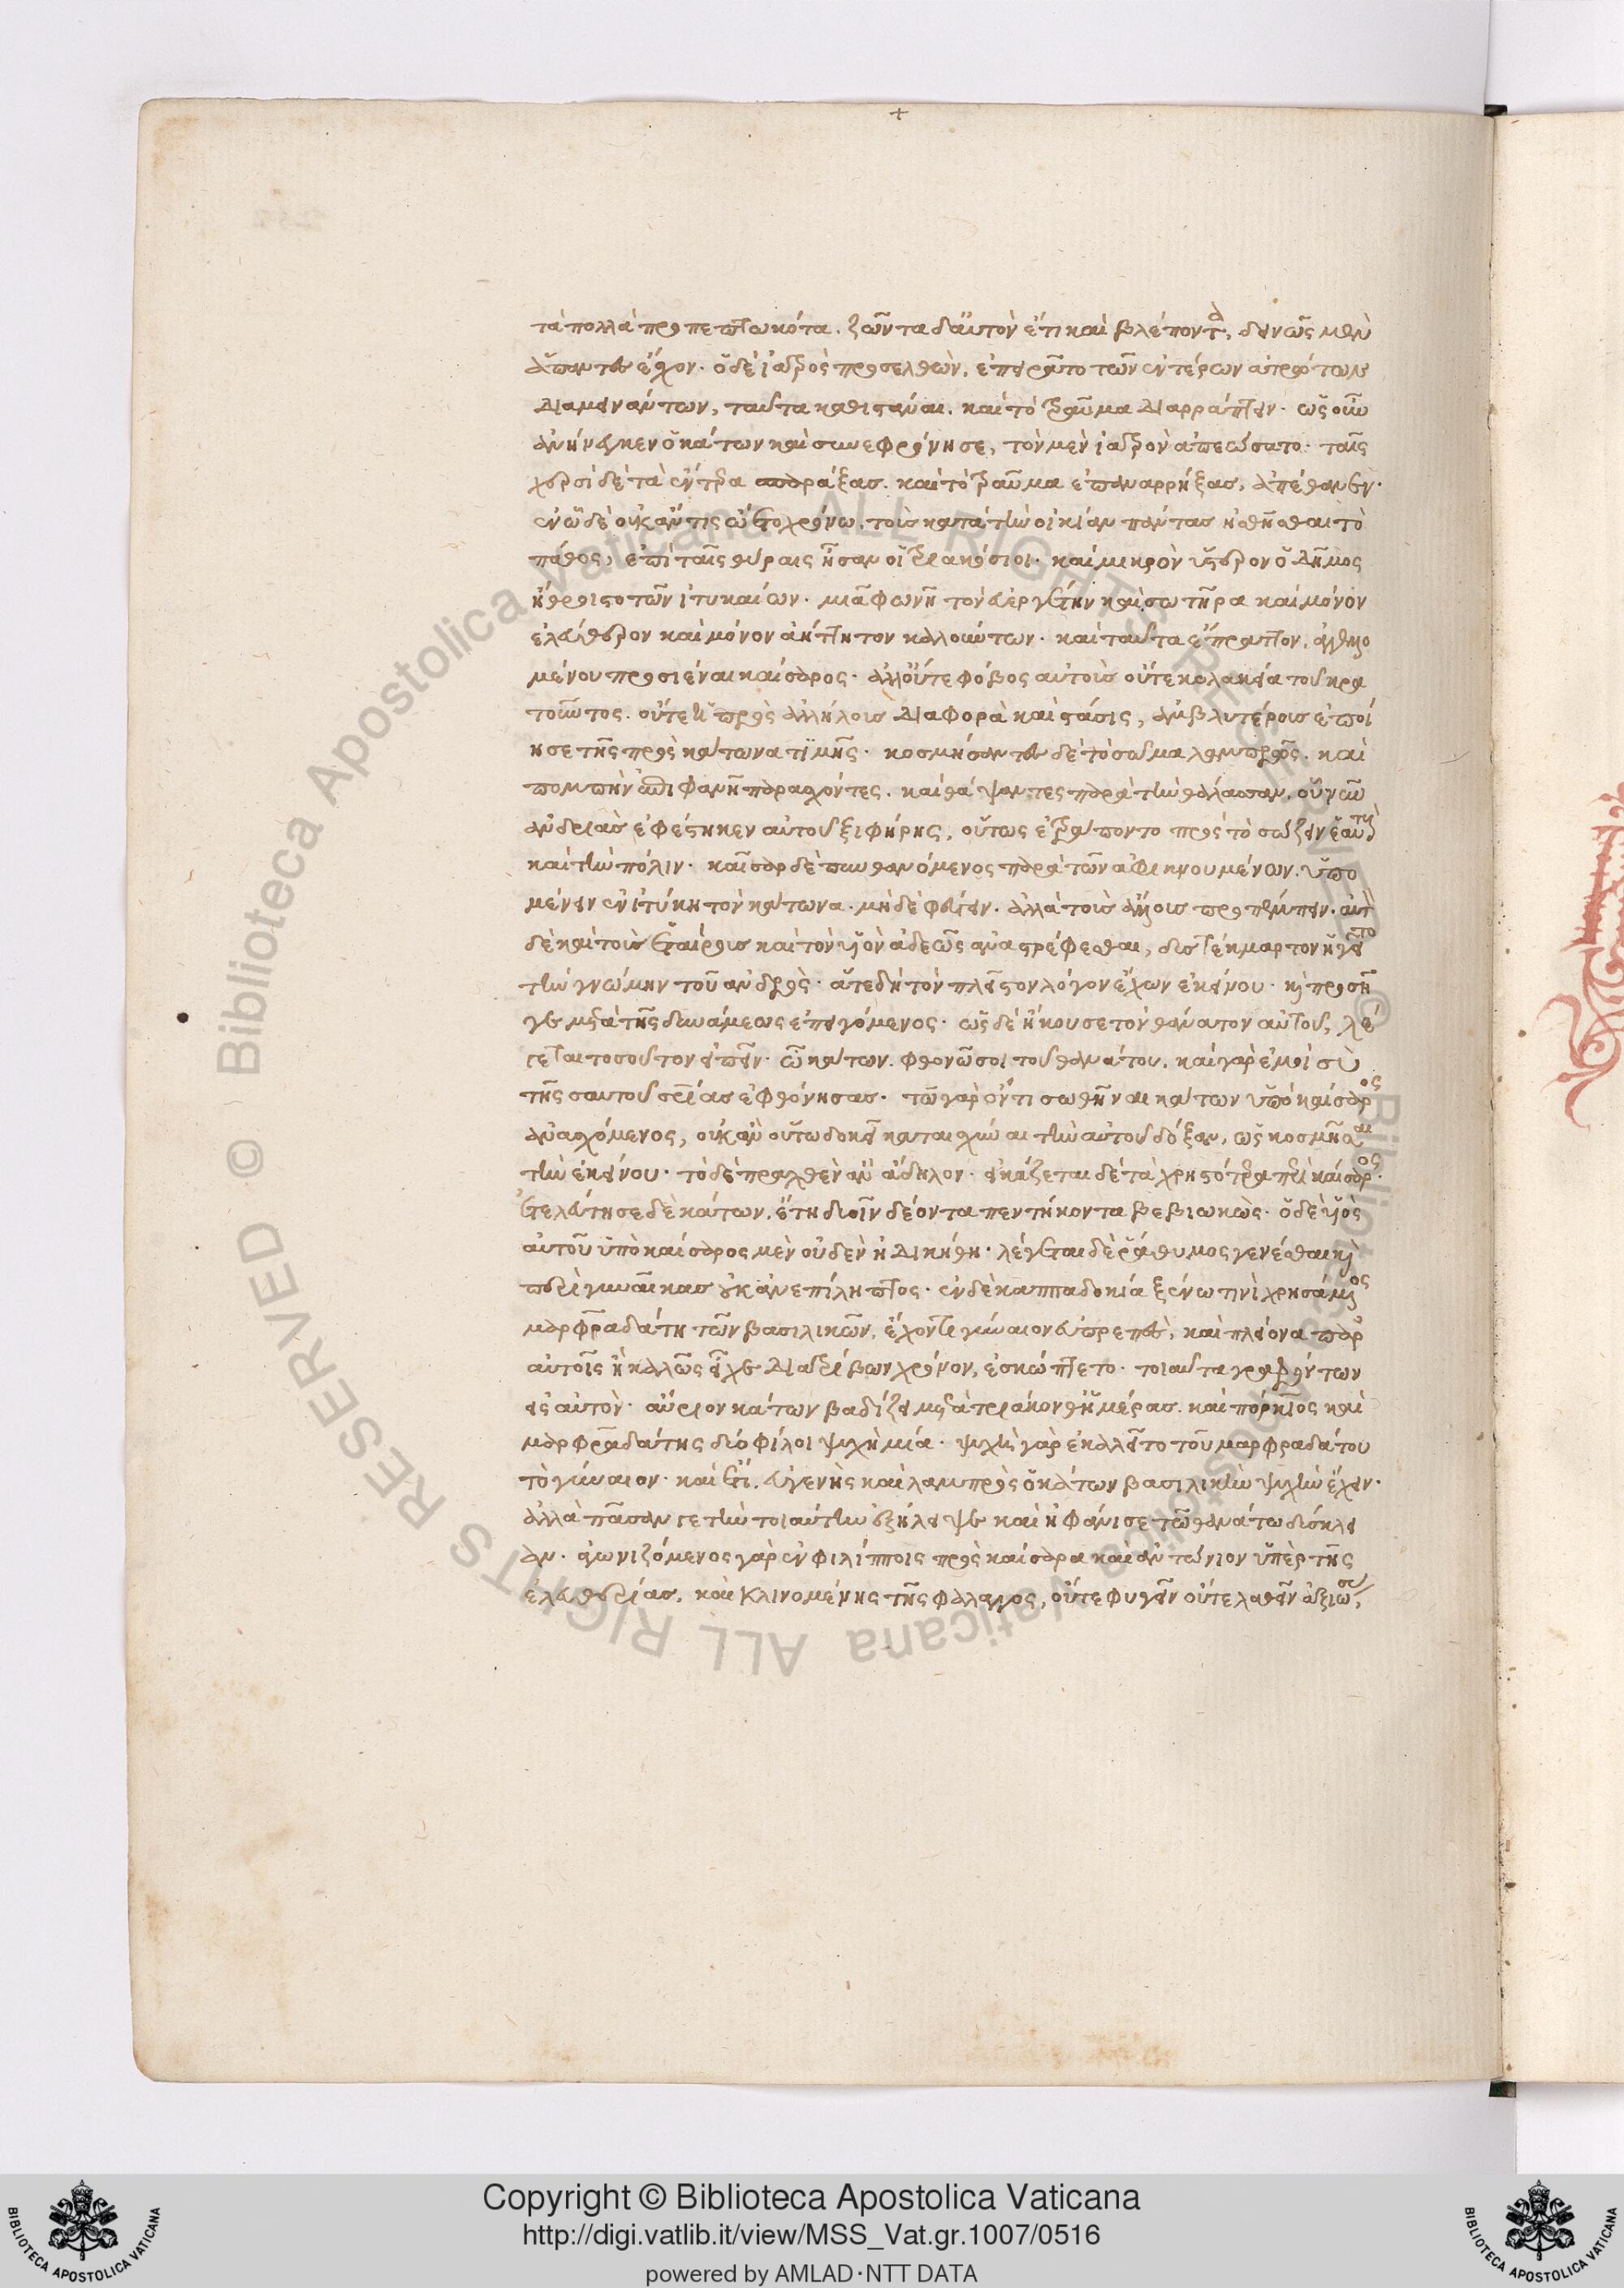 τὰ πολλὰ προπεπτωκότα. ζῶντα δ' αὐτὸν ἔτι καὶ βλέποντα, δεινῶς μὲν
ἅπαντες ἔσχον. ὁ δὲ ἰατρὸς προσελθὼν, ἐπειρᾶτο τῶν ἐντέρων ἀτρώτων
διαμεινάντων, ταῦτα καθιστάναι. καὶ τὸ τραῦμα διαρράπτειν. ὡς οὖν
ἀνήνεγκεν ὁ κάτων καὶ συνεφρόνησε, τὸν μὲν ἰατρὸν ἀπεώσατο. ταῖς
χερσὶ δὲ τὰ ἔντερα σπαράξας. καὶ τὸ τραῦμα ἐπαναρρήξας, ἀπέθανεν.
ἐν ὧ δὲ οὐκ ἄν τις ὤετο χρόνω, τοὺς κατὰ τὴν οἰκίαν πάντας ἠσθῆσθαι τὸ
πάθος, ἐπὶ ταῖς θύραις ἦσαν οἱ τριακόσιοι. καὶ μικρὸν ὕστερον ὁ δῆμος
ἤθροιστο τῶν ἰτυκαίων. μιᾶ φωνῆ τὸν εὐεργέτην καὶ σωτῆρα καὶ μόνον
ἐλεύθερον καὶ μόνον ἀήττητον καλούντων. καὶ ταῦτα ἔπραττον, ἀγγελο
μένου προσιέναι καίσαρος. ἀλλ' οὔτε φόβος αὐτοὺς οὔτε κολακεία τοῦ κρα
τοῦντος. οὔτε ἡ πρὸς ἀλλήλους διαφορὰ καὶ στάσις, ἀμβλυτέρους ἐποί
ησε τῆς πρὸς κάτωνα τιμῆς. κοσμήσαντες δὲ τὸ σῶμα λαμπρῶς. καὶ
πομπὴν ἐπιφανῆ παρασχόντες. καὶ θάψαντες παρὰ τὴν θάλασσαν, οὗ νῦν
ἀνδριὰς ἐφέστηκεν αὐτοῦ ξιφήρης, οὕτως ἐτράποντο πρὸς τὸ σώζειν ἑαυτοὺς
καὶ τὴν πόλιν. καῖσαρ δὲ πυνθανόμενος παρὰ τῶν ἀφικνουμένων. ὑπο
μένειν ἐν ἰτύκη τὸν κάτωνα. μηδὲ φεύγειν. ἀλλὰ τοὺς ἄλλους προπέμπειν. αὐτὸν
δὲ καὶ τοὺς ἑταίρους καὶ τὸν υἱὸν ἀδεῶς ἀναστρέφεσθαι, δυστέκμαρτον ἡγεῖτο
τὴν γνώμην τοῦ ἀνδρὸς. ἅτε δὴ τὸν πλεῖστον λόγον ἔχων ἐκείνου. καὶ προσῆ
γε μετὰ τῆς δυνάμεως ἐπειγόμενος. ὡς δὲ ἤκουσε τὸν θάνατον αὐτοῦ, λέ
γεται τοσοῦτον εἰπεῖν. ὦ κάτων. φθονῶ σοι τοῦ θανάτου. καὶ γὰρ ἐμοὶ σὺ
τῆς σαυτοῦ σωτηρίας ἐφθόνησας. τῶ γὰρ ὄντι σωθῆναι κάτων ὑπὸ καίσαρος
ἀνασχόμενος, οὐκ ἂν οὕτω δοκεῖ καταισχύναι τὴν αὐτοῦ δόξαν, ὡς κοσμῆσαι
τὴν ἐκείνου. τὸ δὲ πραχθὲν ἂν ἄδηλον. εἰκάζεται δὲ τὰ χρηστότερα περὶ καίσαρος.
ἐτελεύτησε δὲ κάτων. ἔτη δυοῖν δέοντα πεντήκοντα βεβιωκὼς. ὁ δὲ υἱὸς
αὐτοῦ ὑπὸ καίσαρος μὲν οὐδὲν ἠδικήθη. λέγεται δὲ ῥάθυμος γενέσθαι καὶ
περὶ γυναῖκας οὐκ ἀνεπίληπτος. ἐν δὲ καππαδοκία ξένω τινὶ χρησάμενος
μαρφραδάτη τῶν βασιλικῶν, ἔχοντι γύναιον εὐπρεπὲς, καὶ πλείονα παρ'
αὐτοῖς ἢ καλῶς εἶχε διατρίβων χρόνον, ἐσκώπτετο. τοιαῦτα γραφόντων
εἰς αὐτὸν. αὔριον κάτων βαδίζει μετὰ τριάκονθ' ἡμέρας. καὶ πόρκιος καὶ
μαρφραδάτης δύο φίλοι ψυχὴ μία. ψυχὴ γὰρ ἐκαλεῖτο τοῦ μαρφραδάτου
τὸ γύναιον. καὶ ἔτι. εὐγενὴς καὶ λαμπρὸς ὁ κάτων βασιλικὴν ψυχὴν ἔχειν.
ἀλλὰ πᾶσαν γε τὴν τοιαύτην ἐξήλειψε καὶ ἠφάνισε τῶ θανάτω δύσκλει
αν. ἀγωνιζόμενος γὰρ ἐν φιλίπποις πρὸς καίσαρα καὶ ἀντώνιον ὑπὲρ τῆς
ἐλευθερίας. καὶ κλινομένης τῆς φάλαγγος, οὔτε φυγεῖν οὔτε λαθεῖν ἀξιώσας,
Copyright © Biblioteca Apostolica Vaticana
http://digi.vatlib.it/view/MSS_Vat.gr.1007/0516
powered by AMLAD·NTT DATA
BIBLIOTECA APOSTOLICA VATICANA
BIBLIOTECA APOSTOLICA VATICANA
© Biblioteca Apostolica Vaticana ALL RIGHTS RESERVED
© Biblioteca Apostolica Vaticana ALL RIGHTS RESERVED